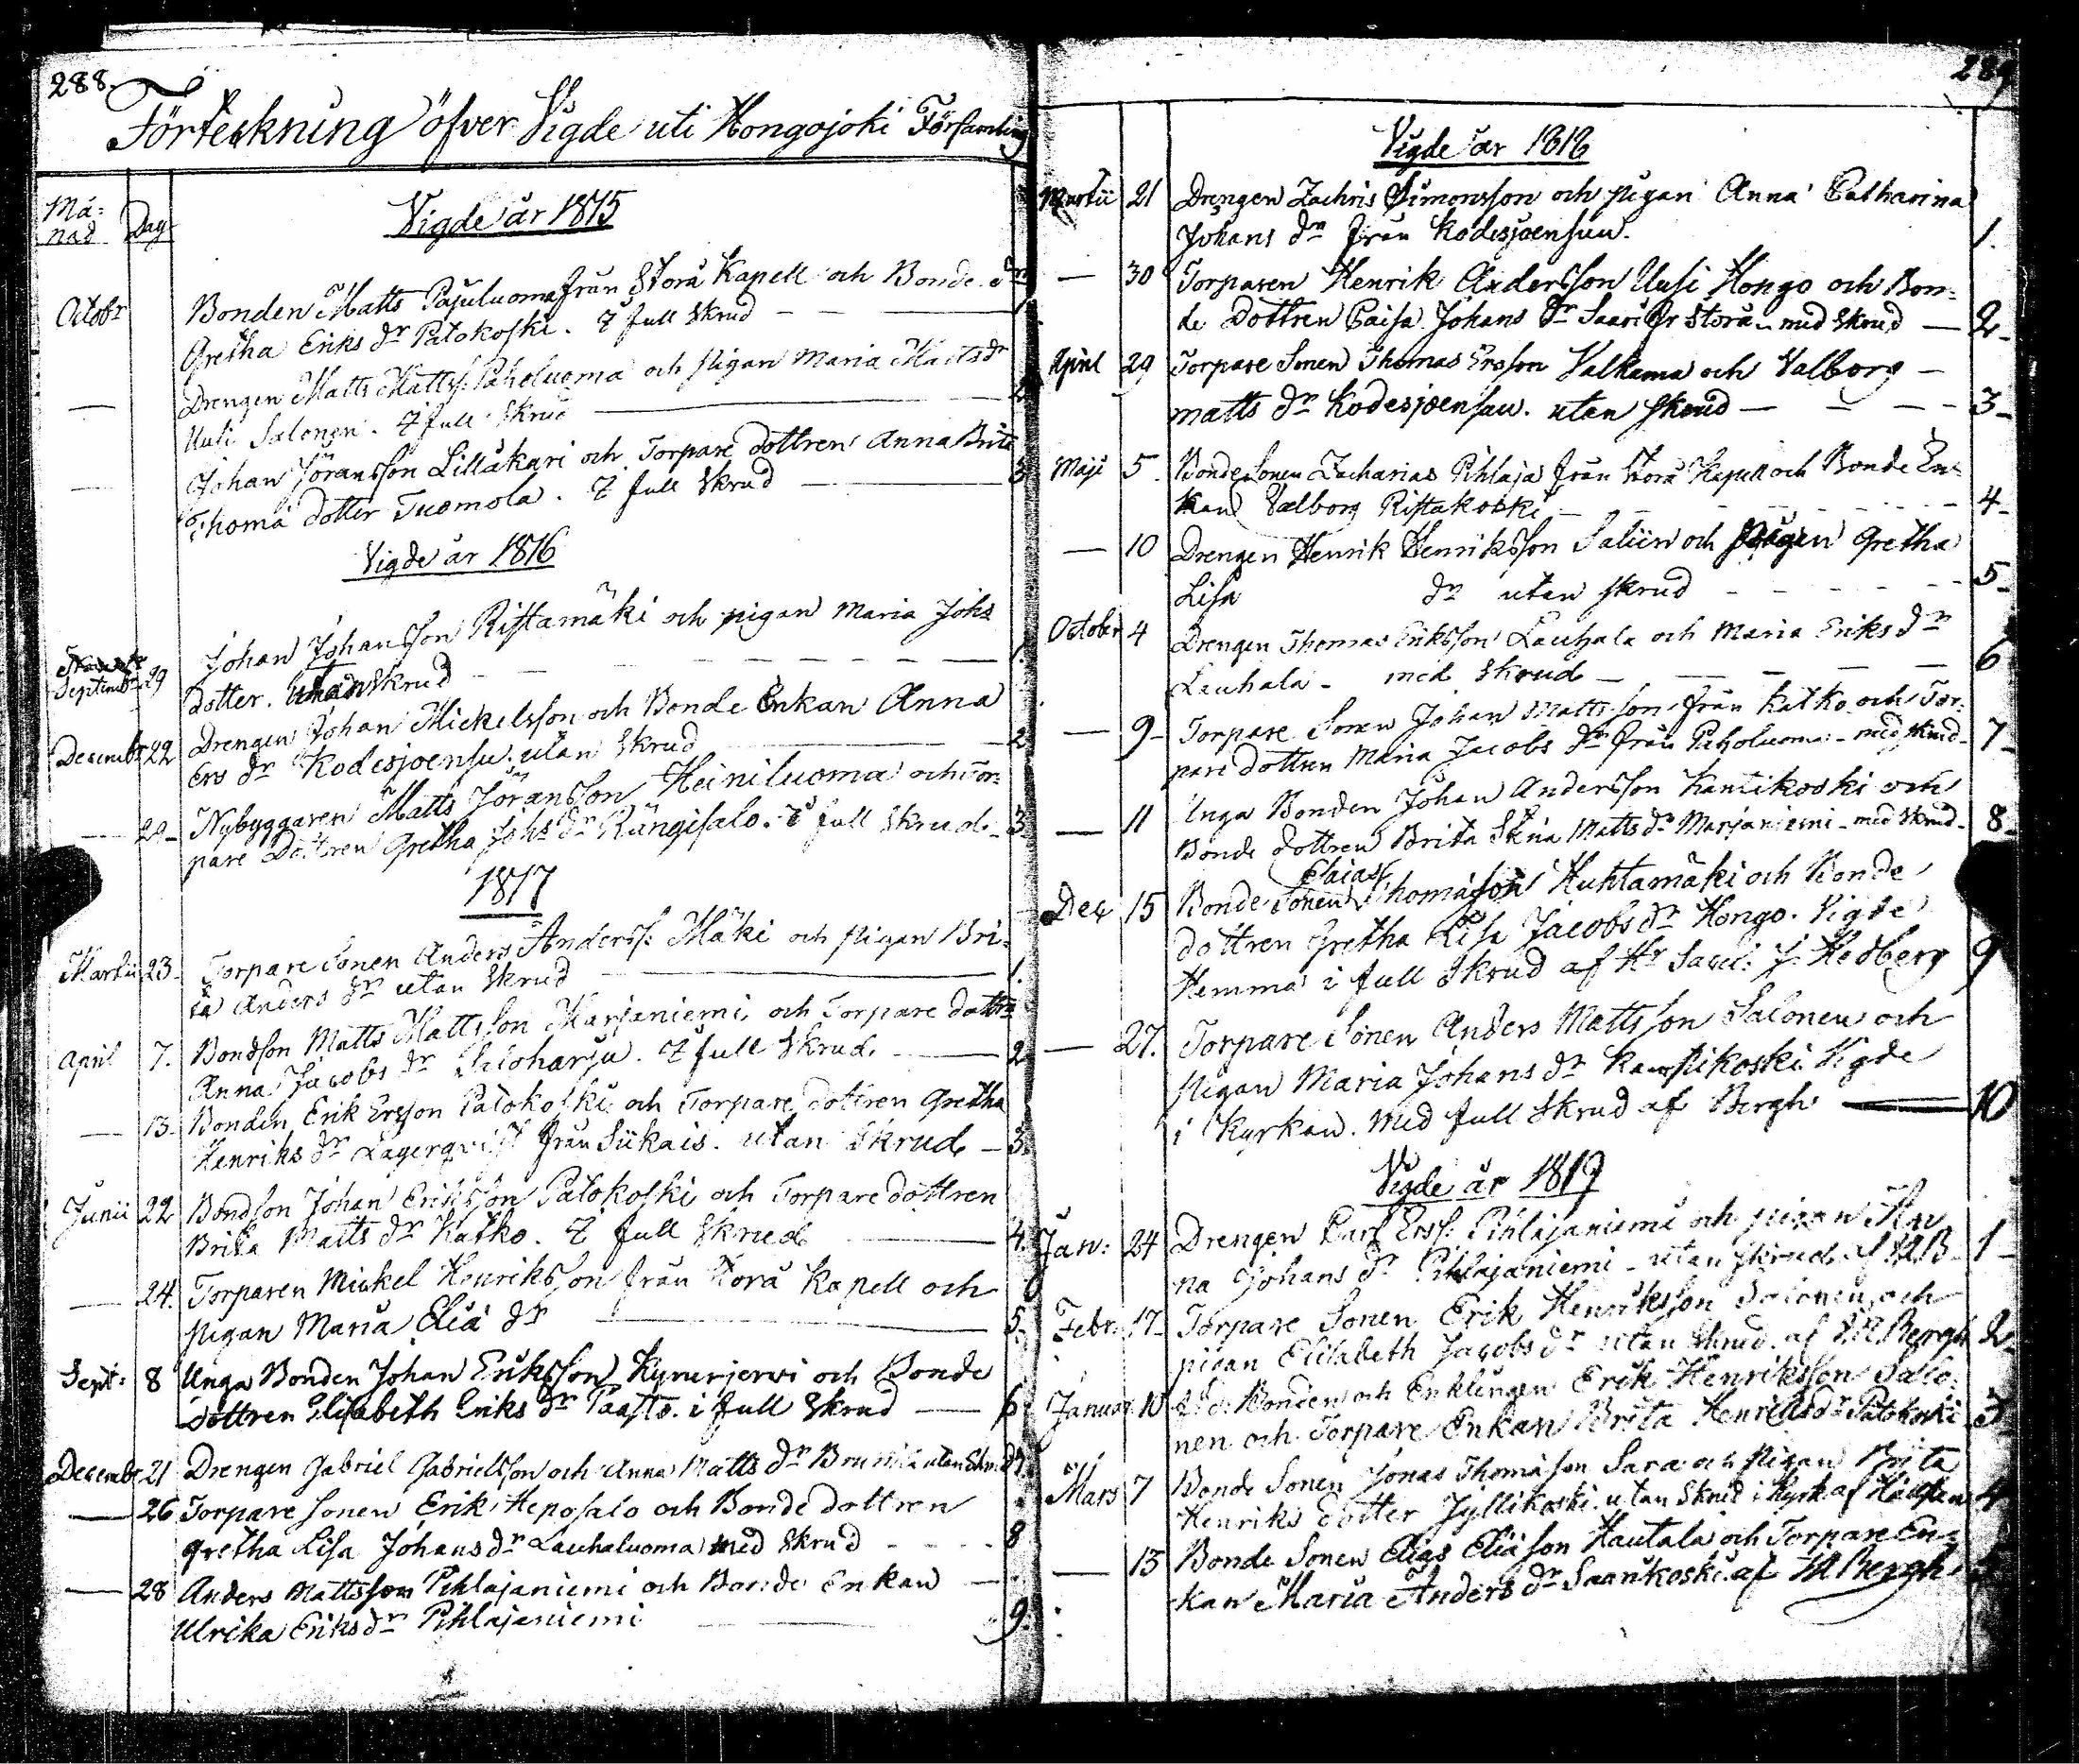 288.
Förteckning öfver Vigde uti Hongojoki Församling
Må=
nad Dag
Vigde år 1815
Octobr Bonden Matts Pajuluoma från Storå Kapell och Bonde dr
Gretha Eriks dr Patokoski. i full Skrud — 1
— Drengen Matts Mattss: Paholuoma och pigan Maria Mattsdr
Uuli Salonen. i full Skrud — 2
— Johan Jöransson Lillåkari och Torpare dottren Anna Brita
Thomä dotter Tuomola. i full Skrud — 3
Vigde år 1816
Septembr 29 Johan Johansson Ristamäki och pigan Maria Johs
dotter. utan Skrud — 1.
Decembr 22 Drengen Johan Mickelsson och Bonde Enkan Anna
Ers dr Kodesjoensu. utan Skrud — 2
— 29 Nybyggaren Matts Jöransson Heiniluoma och Tor=
pare Dottren Gretha Johs dr Rängisalo. i full Skrud. 3
1817
Martii 23. Torpare Sonen Anders Anderss: Mäki och pigan Bri=
ta Anders dr utan Skrud — 1.
April 7. Bondson Matts Mattsson Marjaniemi och Torpare dottrn
Anna Jacobs dr Saloharju. i full Skrud. — 2
— 13. Bonden Erik Ersson Patokoski och Torpare dottren Gretha
Henriks dr Lagerqvist från Siikais. utan Skrud — 3.
Junii 22 Bondson Johan Eriksson Patokoski och Torpare dottren
Brita Matts dr Katko. i full Skrud — 4.
— 24. Torparen Mickel Henriksson från Storå Kapell och
pigan Maria Eliä dr — 5.
Sept: 8 Unga Bonden Johan Eriksson Kyrurjervi och Bonde
dottren Elisabeth Eriks dr Paasto. i full Skrud — 6
Decembr 21 Drengen Gabriel Gabrielsson och Anna Matts dr utan Skrud 7
— 26 Torpare sonen Erik Heposalo och Bonde dottren
Gretha Lisa Johansdr Lauhaluoma med Skrud - - - 8
— 28 Anders Mattsson Pihlajaniemi och Bonde Enkan —
Ulrika Eriksdr Pihlajaniemi — 9.
289
Vigde år 1818
Martii 21 Drengen Zachris Simonsson och pigan Anna Catharina
Johans dr från Kodesjoensuu. 1.
— 30 Torparen Henrik Andersson Uusi Hongo och Bon=
de Dottren Caisa Johans dr Saari fr Storå. med Skrud — 2.
April 29 Torpare Sonen Thomas Ersson Valkama och Valborg —
matts dr Kodesjoensuu. utan skrud — — — 3.
Maji 5. Bonde Sonen Zacharias Pihlaja från Storå Kapell och Bonde En=
kan Valborg Ristakoski — 4.
— 10 Drengen Henrik Henriksson Saliin och pigan Gretha
Lisa dr utan skrud - - - - 5.
October 4 Drengen Thomas Eriksson Lauhala och Maria Eriks dr
Lauhala. med Skrud — — — 6
— 9. Torpare Sonen Johan Mattsson från Katko och Tor=
pare dottren Maria Jacobs dr från Paholuoma. med skrud. 7.
— 11 Unga Bonden Johan Andersson Kantikoski och
Bonde dottren Brita Stina Matts dr Marjaniemi. med Skrud. 8.
Elaias
Dec 15 Bonde Sonen Thomasson Huhtamäki och Bonde
dottren Gretha Lisa Jacobs dr Hongo. Vigde
Hemma i full Skrud af Hr Sacel: J: Hedberg 9
— 27. Torpare Sonen Anders Mattsson Salonen och
pigan Maria Johans dr Kantikoski Vigde
i Kyrkan. Med full Skrud af Bergh — 10
Vigde år 1819
Jan: 24 Drengen Carl Erss: Pihlajaniemi och pigan An
na Johans dr Pihlajaniemi. utan skrud. af MB. 1.
Febr: 17. Torpare Sonen Erik Henriksson Salonen och
pigan Elisabeth Jacobs dr utan Skrud. af M Bergh 2.
Januar 10 f.d. Bonden och Enklingen Erik Henriksson Salo
nen och Torpare Enkan Brita Henriks dr Patokoski 3
Mars 7 Bonde Sonen Jonas Thomasson Sara och Pigan Brita
Henriks dotter Jyllikoski. utan Skrud i Kyrk. af 4
— 15 Bonde Sonen Elias Eliasson Hautala och Torpare En=
kan Maria Anders dr Saarikoski. af M Bergh. 5